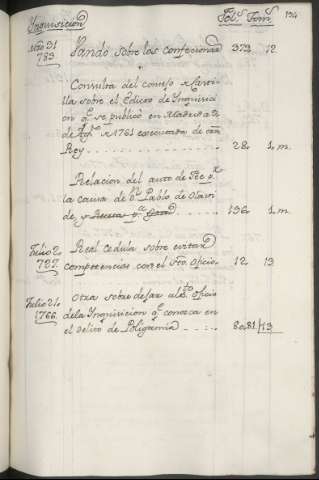 Inquisicion Fol.s Tom.s 194
Bando sobre los confesionar.s 373 12
783
Consulta del consejo de Casti-
lla sobre el Edicto de Inquisici-
on q.e se publicó en Madrid a 2
de Ag.to de 1761 executada de orn
Rey . . . . . . . . . . . . 28. 1. m.
Relacion del auto de Fee p.r
la causa de D.n Pablo de Olavi
de, y . . . . . 196. 1. m.
Julio 2 Real Cedula sobre evitar
797. competencias con el Sto. Oficio. 12 13
Julio 21 Otra sobre dejar al S.to Oficio
1766. de la Inquisicion q.e conosca en
el delito de Poligamia . . . . 80.81 13